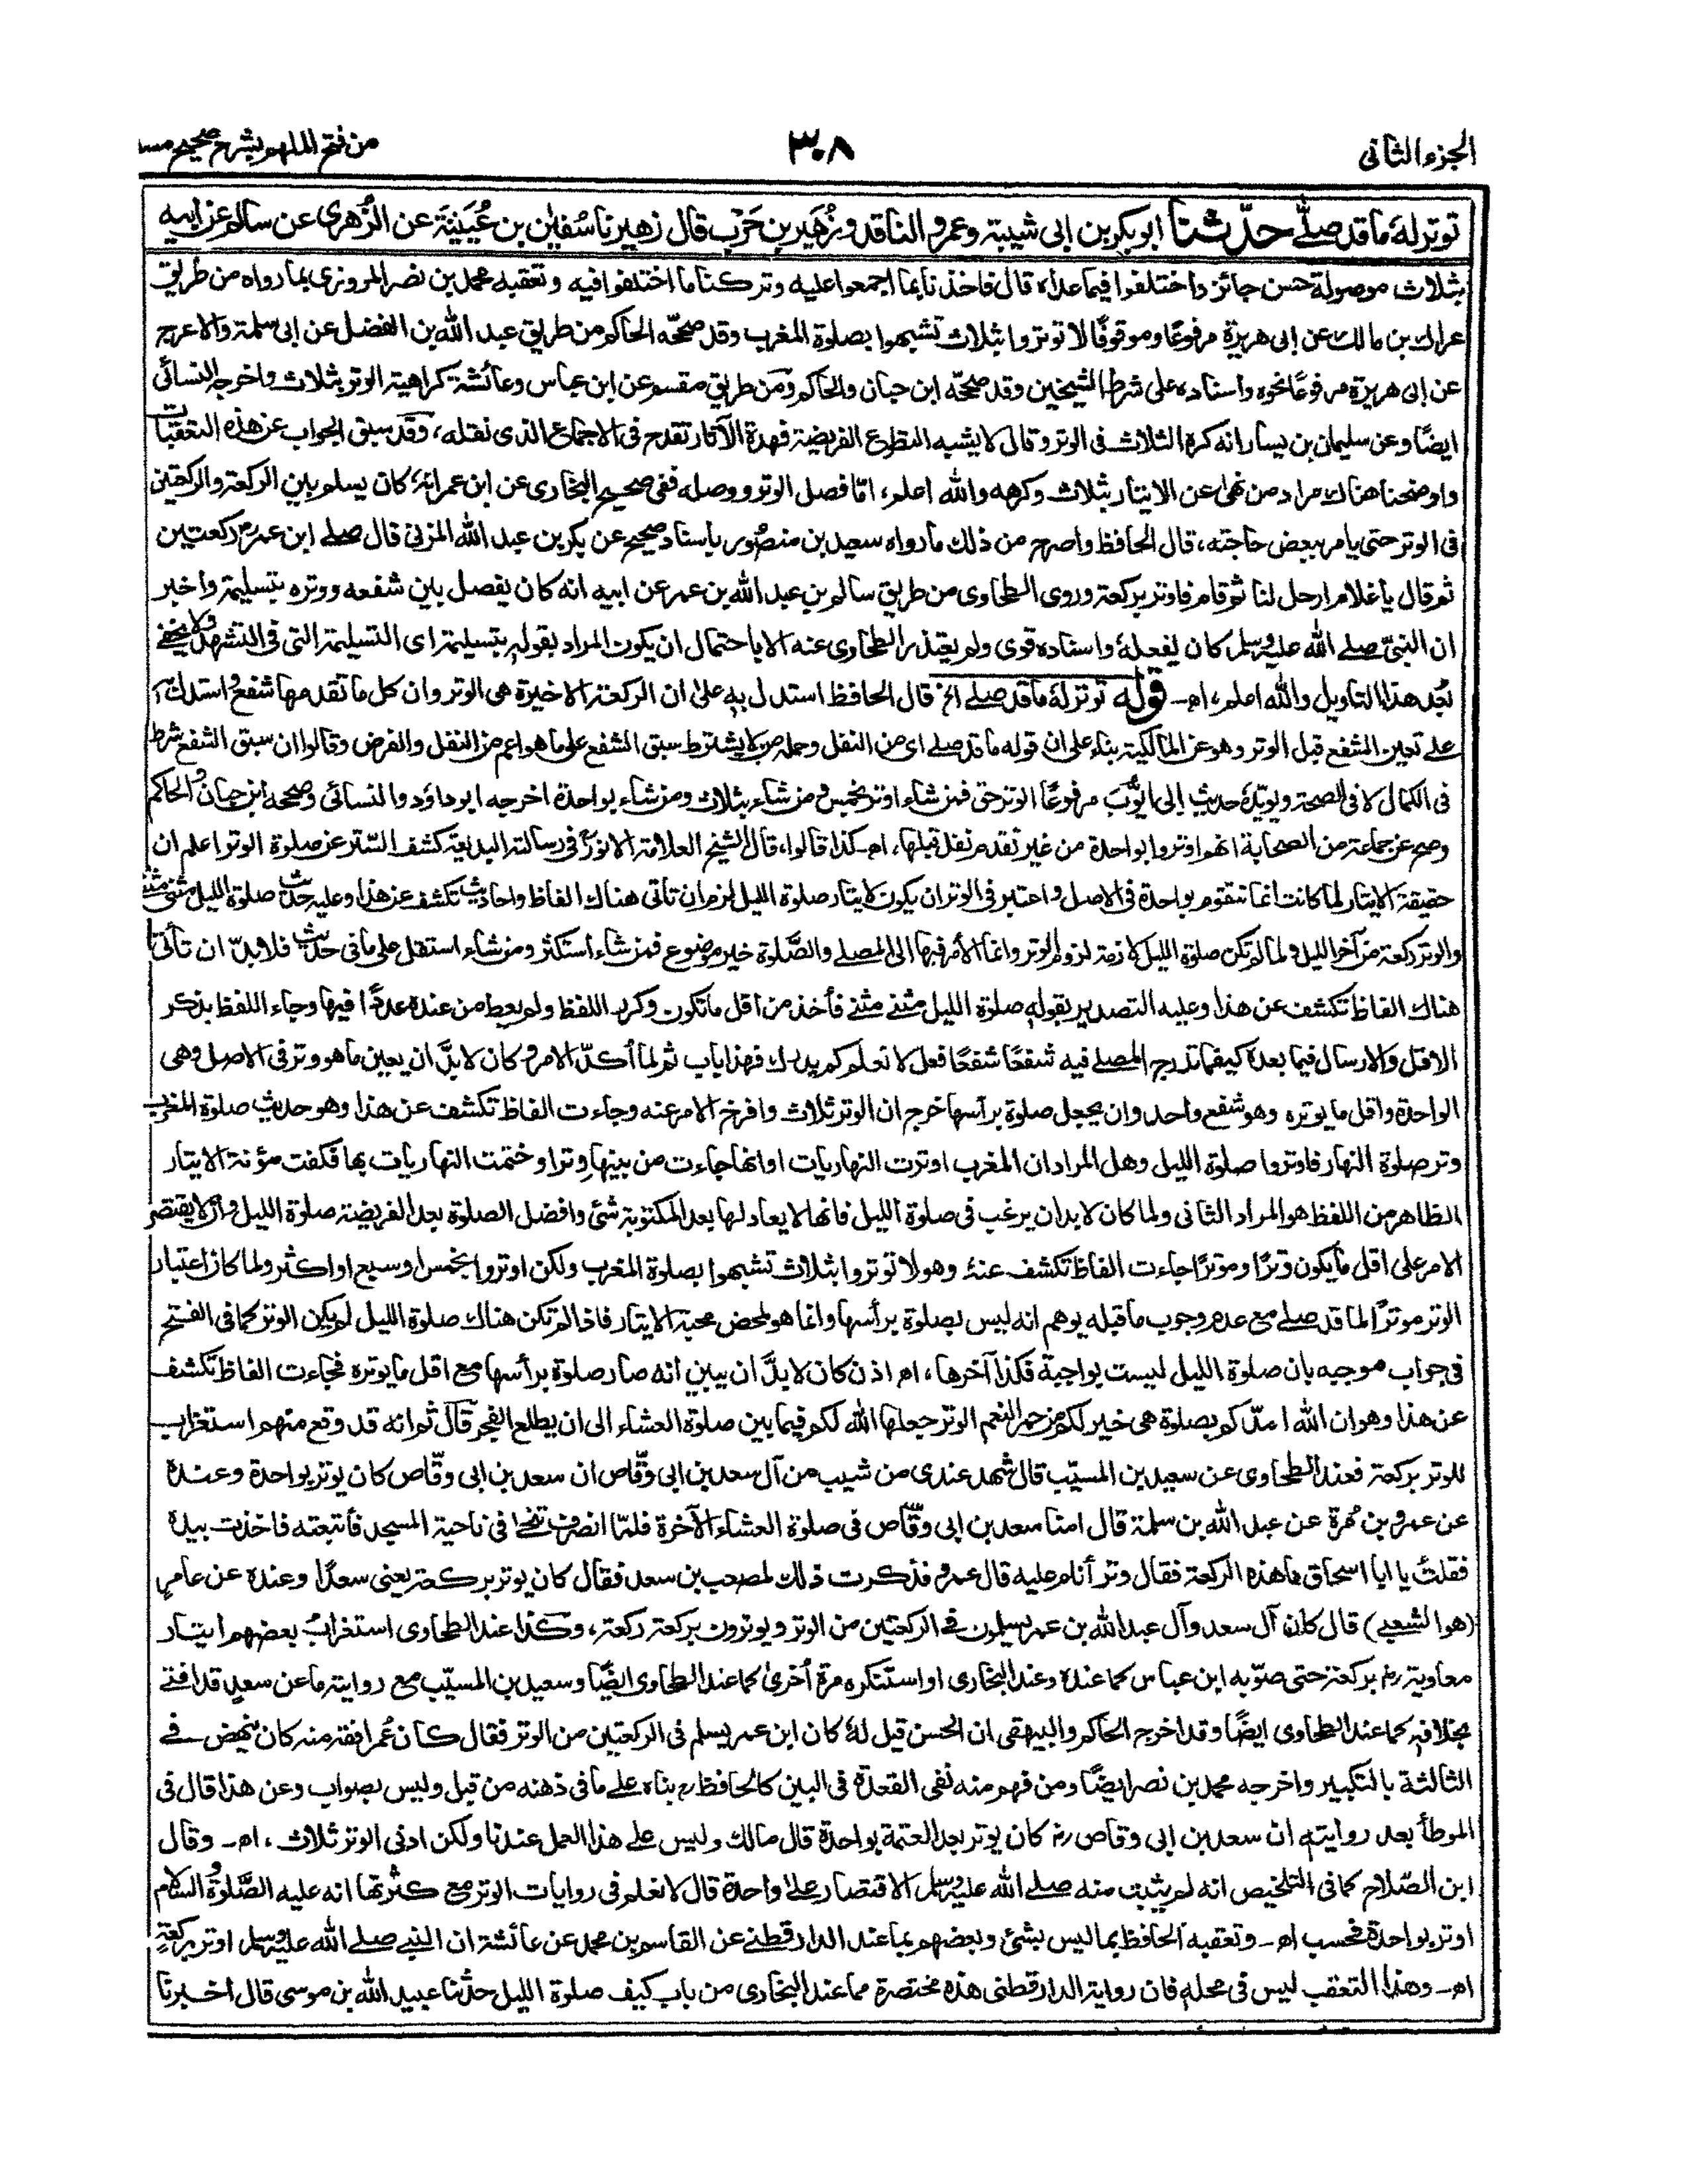 الجزء الثانى
٣٠٨
من فتح الملهم بشرح صحيح مسـ
توتر لهٗ ما قد صلے حدّثنا ابوبكر بن ابى شيبة وعمرو الناقد وزُهَير بن حَرْب قال زهير نا سُفيٰن بن عُيَيْنَة عن الزُهرى عن سالم عن ابيه
بثلاث موصولة حسن جائز واختلفوا فيما عداه قال فاخذنا بما اجمعوا عليه وتركنا ما اختلفوا فيه وتعقبه محمد بن نصر المروزى بما رواه من طريق
عراك بن مالك عن ابى هريرة مرفوعًا وموقوفًا لا توتروا بثلاث تشبهوا بصلوة المغرب وقد صححّه الحاكم من طريق عبد الله بن الفضل عن ابى سلمة والاعرج
عن ابى هريرة مرفوعًا نحوه واسناده على شرط الشيخين وقد صححّه ابن حبان والحاكم ومن طريق مقسم عن ابن عباس وعائشة كراهية الوتر بثلاث واخرجه النسائى
ايضًا وعن سليمان بن يسار انه كره الثلاث فى الوتر وقال لا يشبه التطوع الفريضة فهذة الآثار تقدح فى الاجماع الذى نقله، وقد سبق الجواب عن هذه التعقبات
واوضحنا هناك مراد من نهى عن الايتار بثلاث وكرهه والله اعلم، امّا فصل الوتر ووصله ففى صحيح البخارى عن ابن عمر انهٗ كان يسلم بين الركعة والركعتين
فى الوتر حتى يامر ببعض حاجته، قال الحافظ واصرح من ذلك ما رواه سعيد بن منصُور باسناد صحيح عن بكر بن عبد الله المزنى قال صلے ابن عمر رض ركعتين
ثم قال يا غلام ارحل لنا ثم قام فاوتر بركعة وروى الطحاوى من طريق سالم بن عبد الله بن عمر عن ابيه انه كان يفصل بين شفعه ووتره بتسليمة واخبر
ان النبىّ صلے الله عليه وسلم كان يفعلهٗ واسناده قوى ولم يعتذر الطحاوى عنه الا باحتمال ان يكون المراد بقوله بتسليمة اى التسليمة التى فى التشهد ولا يخفے
بُعد هذا التاويل والله اعلم، اه‍ـ قوله توتر لهٗ ما قد صلے الخ قال الحافظ استدل به علىٰ ان الركعة الاخيرة هى الوتر وان كل ما تقدمها شفع واستدل به
علے تعين الشفع قبل الوتر وهو عن المالكية بناء على ان قوله ما قد صلے اى من النفل وحمله من لا يشترط سبق الشفع على ما هو اعم من النفل والفرض وقالوا ان سبق الشفع شرط
فى الكمال لا فى الصحة ويويّدهٗ حديث ابى ايُّوبَ مرفوعًا الوتر حق فمن شاء اوتر بخمس ومن شاء بثلاث ومن شاء بواحدة اخرجه ابوداؤد والنسائى وصححه ابن حبان والحاكم
وصح عن جماعة من الصحابة انهم اوتروا بواحدة من غير تقدم نفل قبلها، اه‍ـ كذا قالوا، قال الشيخ العلامة الانورؒ فى رسالته البديعة كشف السّتر عن صلوة الوتر اعلم ان
حقيقة الايتار لما كانت انما تتقوم بواحدة فى الاصل واعتبر فى الوتر ان يكون لايتار صلوة الليل لزم ان تاتى هناك الفاظ واحاديث تكشف عن هذا وعليه حديث صلوة الليل مثنى مثنى
والوتر ركعة من آخر الليل ولما لم تكن صلوة الليل لازمة لزوم الوتر وانما الأمر فيها الى المصلے والصَّلوة خير موضوع فمن شاء استكثر ومن شاء استقل على ما فى حديث فلا بدّ ان تأتى
هناك الفاظ تكشف عن هذا وعليه التصدير بقوله صلوة الليل مثنے مثنے فأخذ من اقل ما تكون وكرر اللفظ ولم يعط من عنده عددًا فيها وجاء اللفظ بذكر
الاقل والارسال فيما بعدهٗ كيفما تدرج المصلے فيه شفعًا شفعًا فعل لا تعلم كم يدرك فهذا باب ثم لما أكّد الامر و كان لا بدَّ ان يعين ما هو وتر فى الاصل وهى
الواحدة واقل ما يوتره وهو شفع واحد وان يجعل صلوة برأسها خرج ان الوتر ثلاث وافرخ الامر عنه وجاءت الفاظ تكشف عن هذا وهو حديث صلوة المغرب
وتر صلوة النهار فاوتروا صلوة الليل وهل المراد ان المغرب اوترت النهاريات اوانها جاءت من بينها وترا وختمت النهاريات بها فكفت مؤنة الايتار
الظاهر من اللفظ هو المراد الثانى ولما كان لا بد ان يرغب فى صلوة الليل فانها لا يعادلها بعد المكتوبة شئ وافضل الصلوة بعد الفريضة صلوة الليل وان لا يقتصر
الامر على اقل ما يكون وترًا وموترًا جاءت الفاظ تكشف عنهٗ وهو لا توتروا بثلاث تشبهوا بصلوة المغرب ولكن اوتروا بخمس او سبع او اكثر ولما كان اعتبار
الوتر موترًا لما قد صلے مع عدم وجوب ما قبله يوهم انه ليس بصلوة برأسها وانما هو لمحض محبة الايتار فاذا لم تكن هناك صلوة الليل لم يكن الوتر كما فى الفتح
فى جواب موجبه بان صلوة الليل ليست بواجبة فكذا آخرها، اه‍ اذن كان لا بدَّ ان يبين انه صار صلوة برأسها مع اقل ما يوتره فجاءت الفاظ تكشف
عن هذا وهو ان الله امدّكم بصلوة هى خير لكم من حمر النعم الوتر جعلها الله لكم فيما بين صلوة العشاء الى ان يطلع الفجر قال ثم انه قد وقع منهم استغراب
للوتر بركعة فعند الطحاوى عن سعيد بن المسيّب قال شهد عندى من شيب من آل سعد بن ابى وقّاص ان سعد بن ابى وقّاص كان يوتر بواحدة وعنده
عن عمرو بن مُرة عن عبد الله بن سلمة قال امنا سعد بن ابى وقّاص فى صلوة العشاء الآخرة فلمّا انصرف تنحى فى ناحية المسجد فأتبعته فاخذت بيده
فقلتُ يا ابا اسحاق ما هذه الركعة فقال وترٌ أنام عليه قال عمرو فذكرت ذلك لمصعب بن سعد فقال كان يوتر بركعة يعنى سعدًا وعنده عن عامر
(هو الشعبے) قال كان آل سعد وآل عبد الله بن عمر يسلمون فے الركعتين من الوتر ويوترون بركعة ركعة، وكذا عند الطحاوى استغرابُ بعضهم ايتار
معاوية رض بركعة حتى صوّبه ابن عباس كما عنده وعند البخارى او استنكره مرة اُخرىٰ كما عند الطحاوى ايضًا وسعيد بن المسيّب مع روايته ما عن سعد قد افتے
بخلافه كما عند الطحاوى ايضًا وقد اخرج الحاكم والبيهقى ان الحسن قيل لهٗ كان ابن عمر يسلم فى الركعتين من الوتر فقال كان عُمر افقه منه كان ينهض فے
الثالثة بالتكبير واخرجه محمد بن نصر ايضًا ومن فهم منه نفى القعدة فى البين كالحافظ رح بناه علے ما فى ذهنه من قبل وليس بصواب وعن هذا قال فى
الموطأ بعد روايته ان سعد بن ابى وقاص رض كان يوتر بعد العتمة بواحدة قال مالك وليس علے هذا العمل عندنا ولكن ادنى الوتر ثلاث، اه‍ـ وقال
ابن الصّلاح كما فى التلخيص انه لم يثبت منه صلے الله عليه وسلم الاقتصار علىٰ واحدة قال لا نعلم فى روايات الوتر مع كثرتها انه عليه الصَّلوةُ والسلام
اوتر بواحدة فحسب اه‍ـ وتعقبه الحافظ بما ليس بشئ وبعضهم بما عند الدارقطنے عن القاسم بن محمد عن عائشة ان النبے صلے الله عليه وسلم اوتر بركعةٍ
اه‍ـ وهذا التعقب ليس فى محله فان رواية الدارقطنى هذه مختصرة مما عند البخارى من باب كيف صلوة الليل حدّثنا عبيد الله بن موسى قال اخبرنا